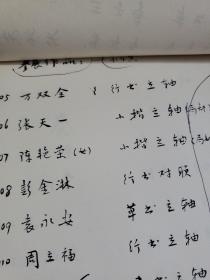 05 万双全 行书立轴
06 张天一 小楷立轴
07 陈艳荣(女) 小楷立轴
08 彭金淋 行书对联
09 袁永安 草书立轴
010 周立福 行书立轴